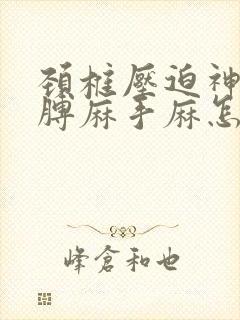 颈椎壓迫神
脾麻手麻怎
峰倉和也